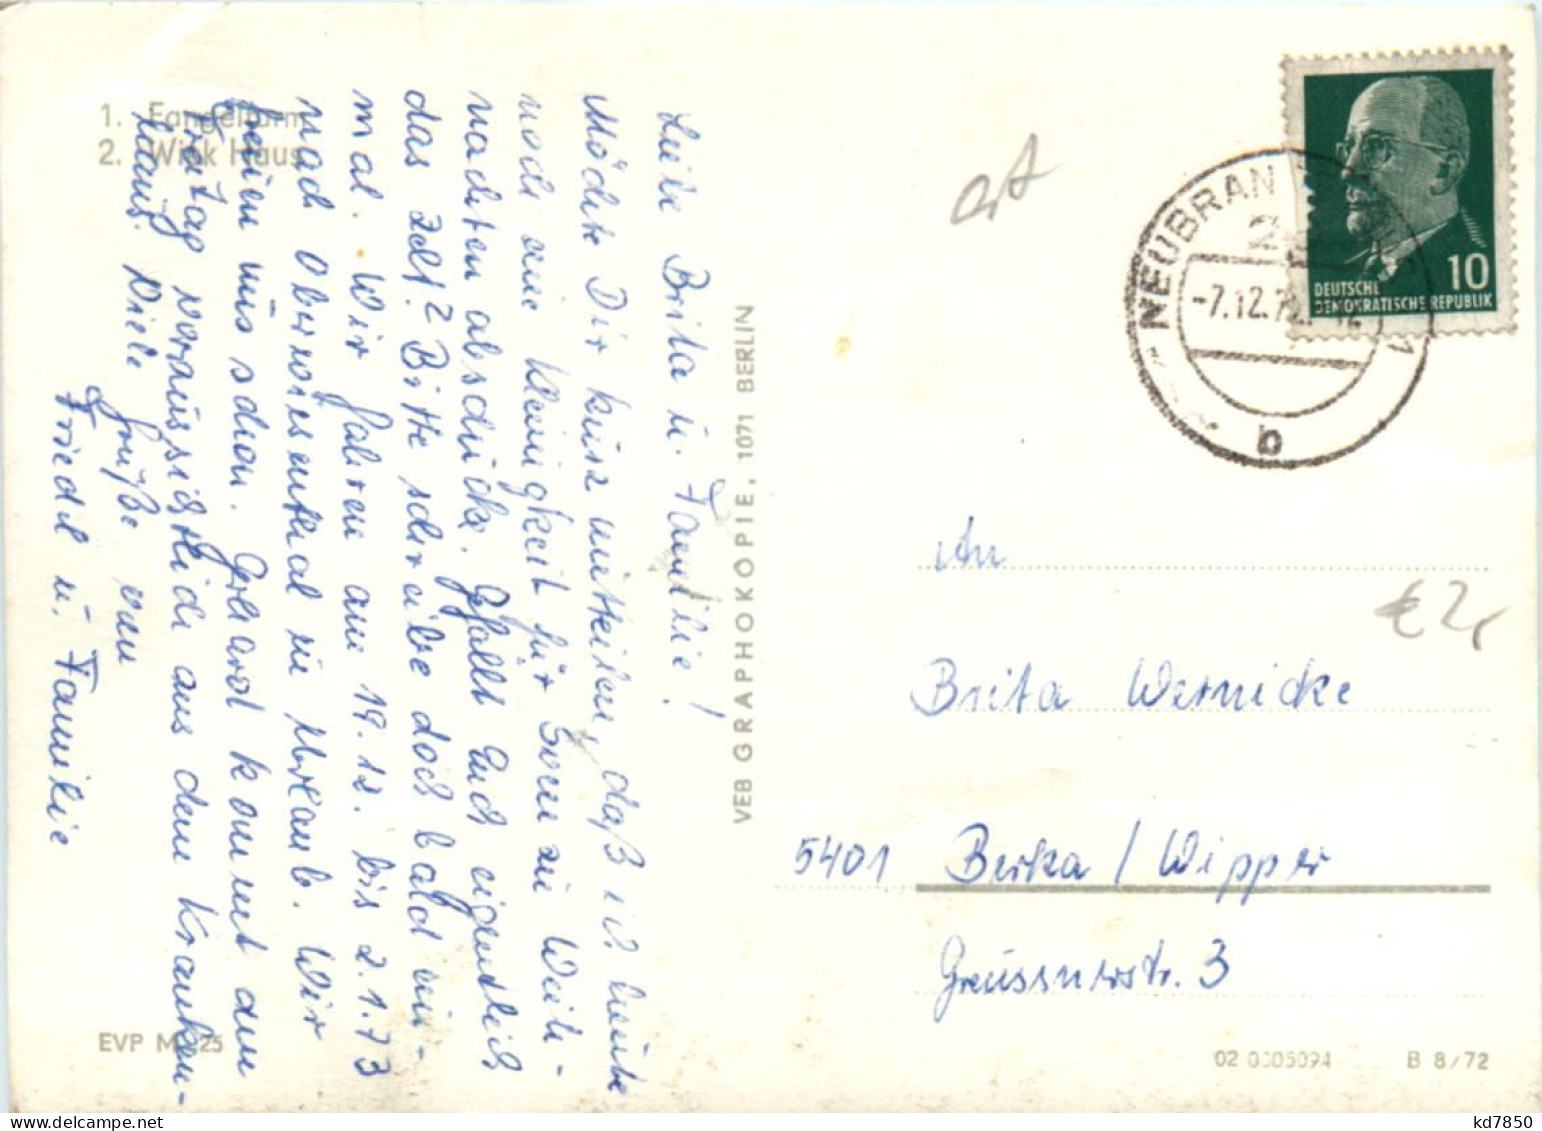 1. Fangelturm
2. Wiek Haus
Liebe Brita u. Familie!
Möchte Dir kurz mitteilen, daß ich heute
noch eine Kleinigkeit für Sven zu Weih-
nachten abschicke. Gefällt Euch eigentlich
das Zelt? Bitte schreibe doch bald ein-
mal. Wir fahren am 19.12. bis 2.1.73
nach Oberwiesenthal in Urlaub. Wir
freuen uns schon. Gerhard kommt am
Freitag voraussichtlich aus dem Kranken-
haus. Viele Grüße von
Friedel u. Familie
EVP M 0,25
VEB GRAPHOKOPIE, 1071 BERLIN
DEUTSCHE
DEMOKRATISCHE REPUBLIK
10
NEUBRAN 1
-7.12.7
b
An
Brita Wernicke
5401 Berka / Wipper
Greussnerstr. 3
€ 2,
02 0005094 B 8/72
kd7850